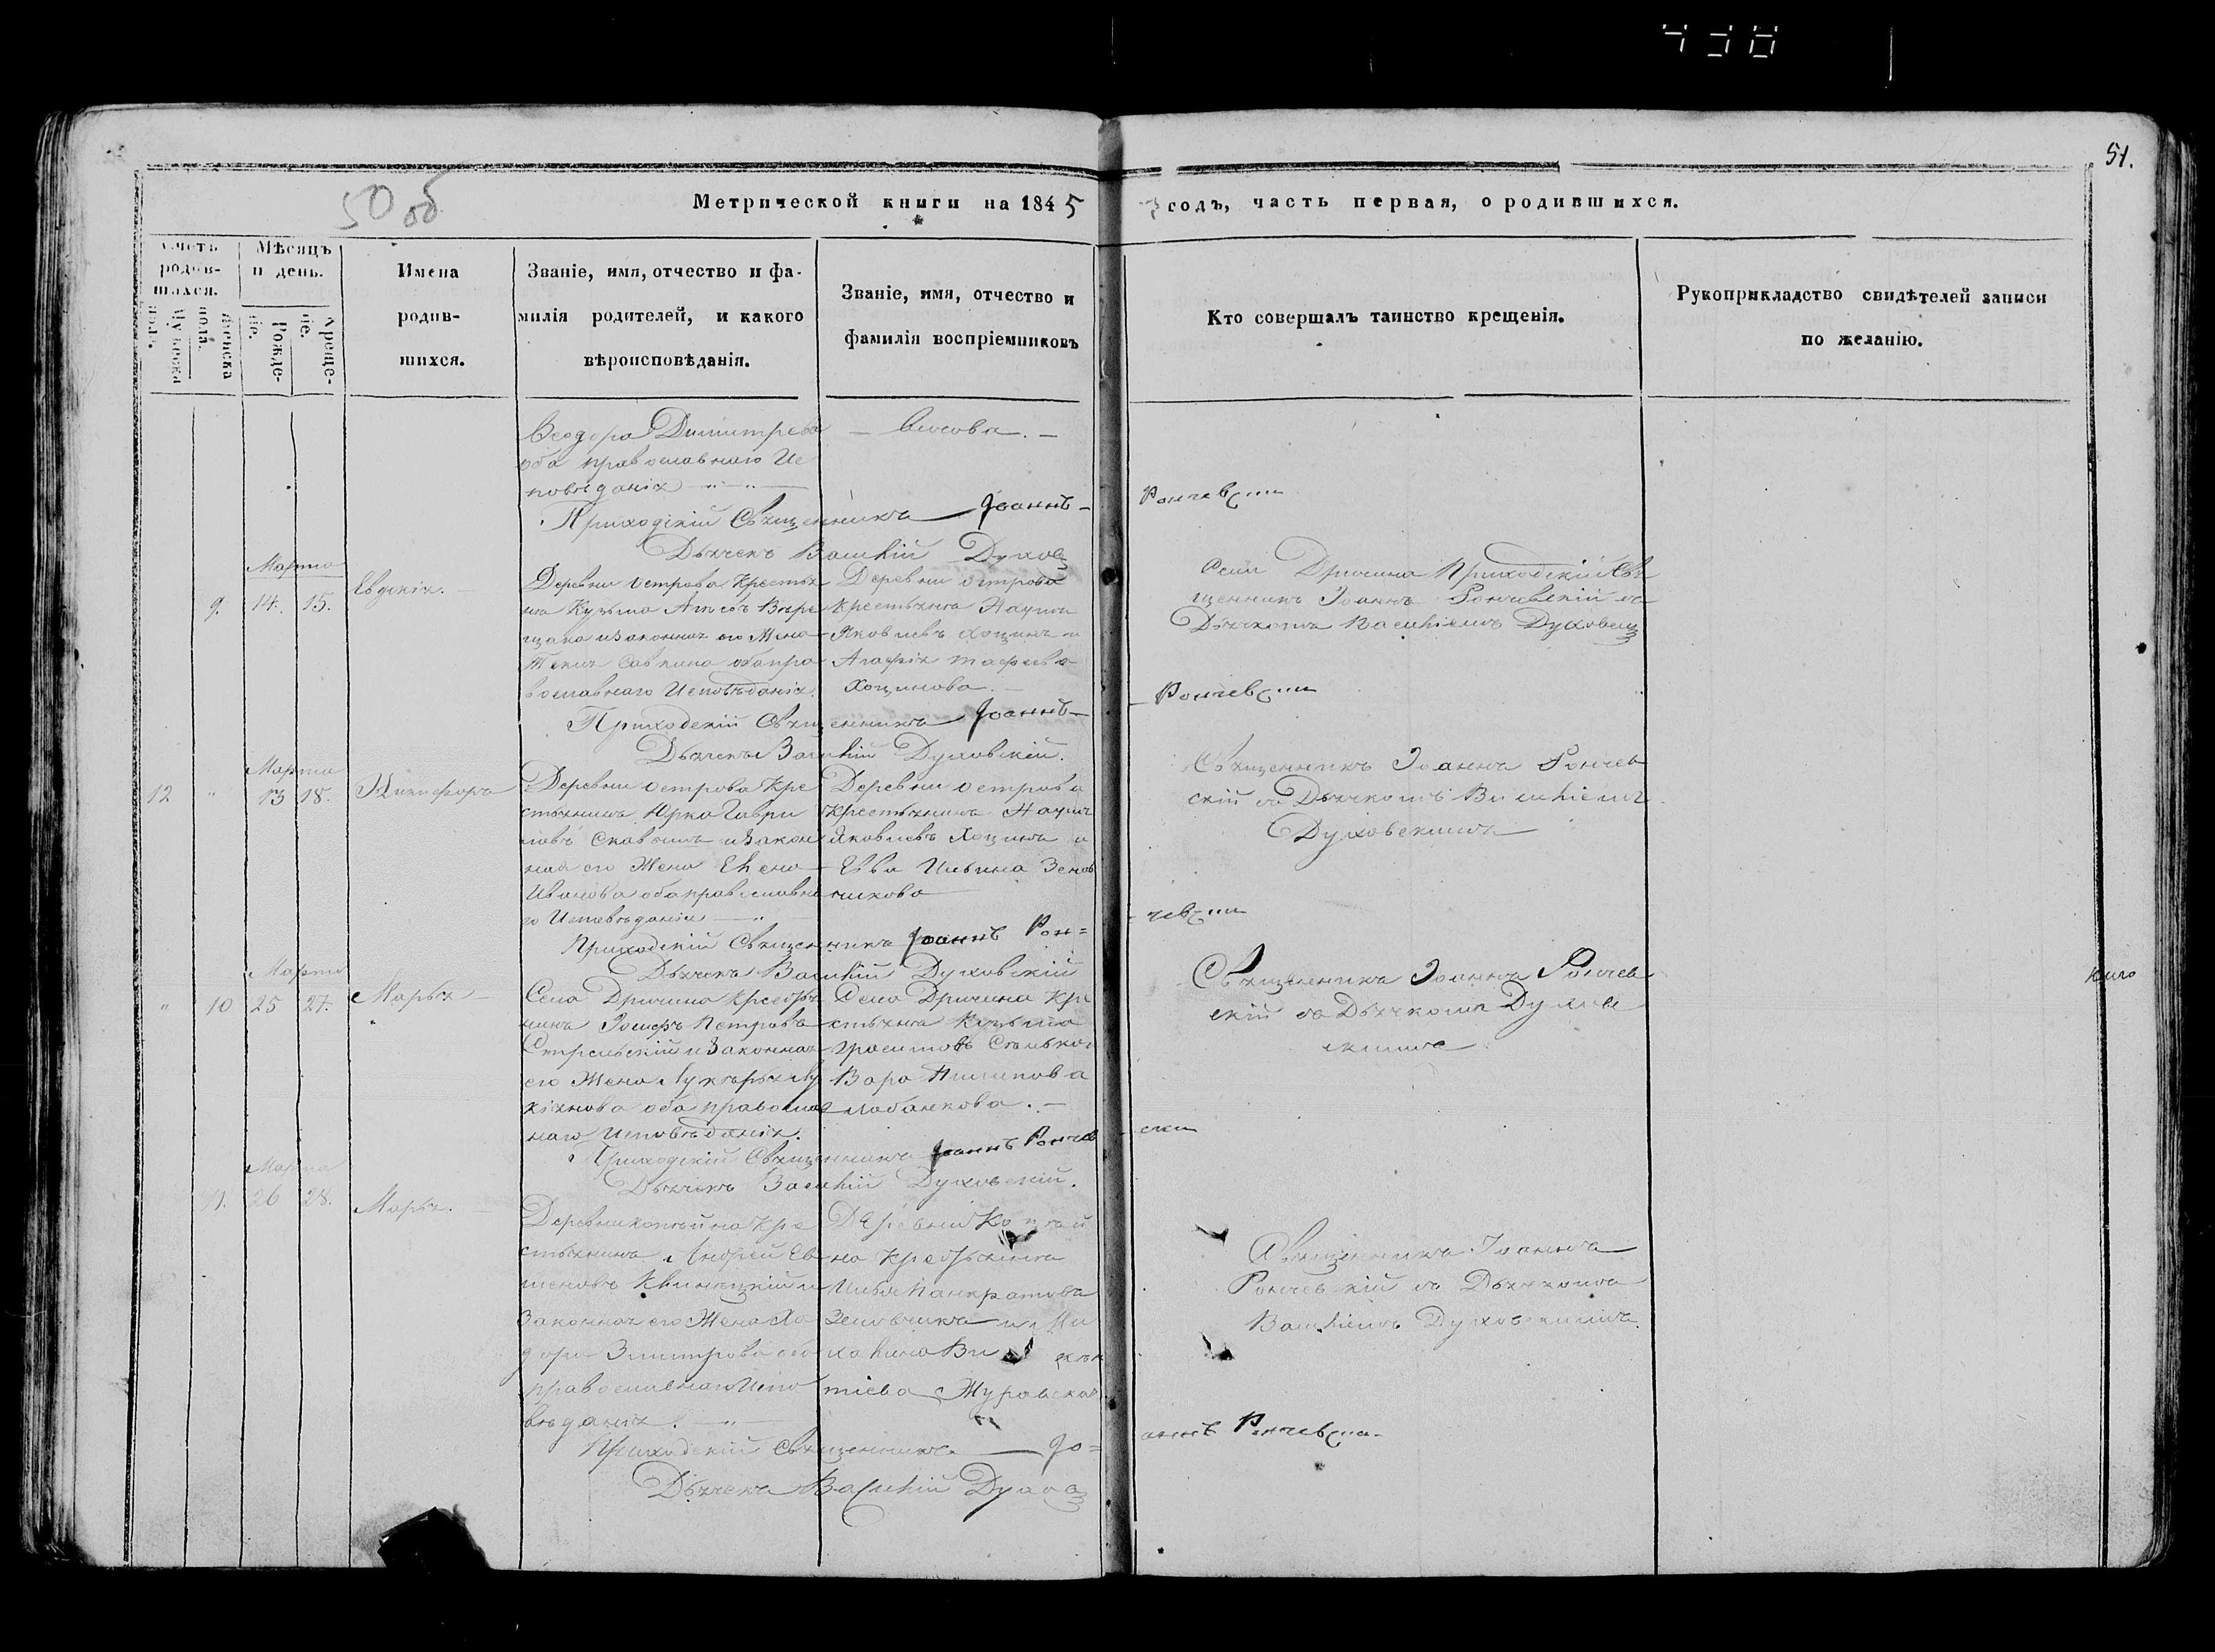 438
51.
50 об
Метрической книги на 1845
годъ, часть первая, о родившихся.
Счетъ родив-
шихся.
Мужеска пола.
Женска пола.
Мѣсяцъ
и день.
Рожде-
ніе.
Креще-
ніе.
Имена
родив-
шихся.
Званіе, имя, отчество и фа-
милія родителей, и какого
вѣроисповѣданія.
Званіе, имя, отчество и
фамилія воспріемниковъ
Кто совершалъ таинство крещенія.
Рукоприкладство свидѣтелей записи
по желанію.
Ѳеодора Димитрева
оба православнаго Ис
повѣданія
Приходскій Священникъ Іоаннъ
Рончевски
Дьячекъ Василій Духов
Марта
9. 14. 15.
Евдокія.
Деревни Острова Крестья
нъ Кузьма
щака и законная его Жена
Савкина оба пра
вославнаго Исповѣданія.
Деревни Острова
Крестьянинъ Наумъ
Яковлевъ Хоцинъ и
Агафія
Хоцинова.
Села Дричина Приходскій Свя
щенникъ Іоаннъ Рончевскій съ
Дьячкомъ Василіемъ Духовск
Приходскій Священникъ Іоаннъ
Рончевски
Дьячекъ Василій Духовскій.
Марта
12 " 13 18.
Никифоръ
Деревни Острова Кре
стьянинъ Юрка Гаври
ловъ и закон
ная его Жена Елена
Иванова оба православна
го Исповѣданія
Деревни Острова
Крестьянинъ Наумъ
Яковлевъ Хоцинъ и
Евва Ильина Зенов
чикова
Священникъ Іоаннъ Рончев
скій съ Дьячкомъ Василіемъ
Духовскимъ
Приходскій Священникъ Іоаннъ Рон=
чевски
Дьячекъ Василій Духовскій
Марта
" 10 25 27.
Марья
Села Дричина Крестья
нинъ Іосифъ Петровъ
Стрельскій и законная
его Жена Лукерья Лу
кіянова оба православ
наго Исповѣданія.
Села Дричина Кре
стьянинъ Кузьма
Вара Филипова
Лобанкова.
Священникъ Іоаннъ Рончев
скій съ Дьячкомъ Духов
скимъ
Приходскій Священникъ Іоаннъ Рончев
ски
Дьячекъ Василій Духовскій.
Марта
11. 26 28.
Марья.
Деревни Кре
стьянинъ Андрей Ев
и
Законная его Жена Хо
дора Змитрова оба
православнаго Испо
вѣданія.
Деревни
на Крестьянинъ
Илья Панкратовъ
Зеновчикъ и Ми
Журавская
Священникъ Іоаннъ
Рончевскій съ Дьячкомъ
Василіемъ Духовскимъ.
Приходскій Священникъ Іо=
аннъ Рончевски
Дьячекъ Василій Духов